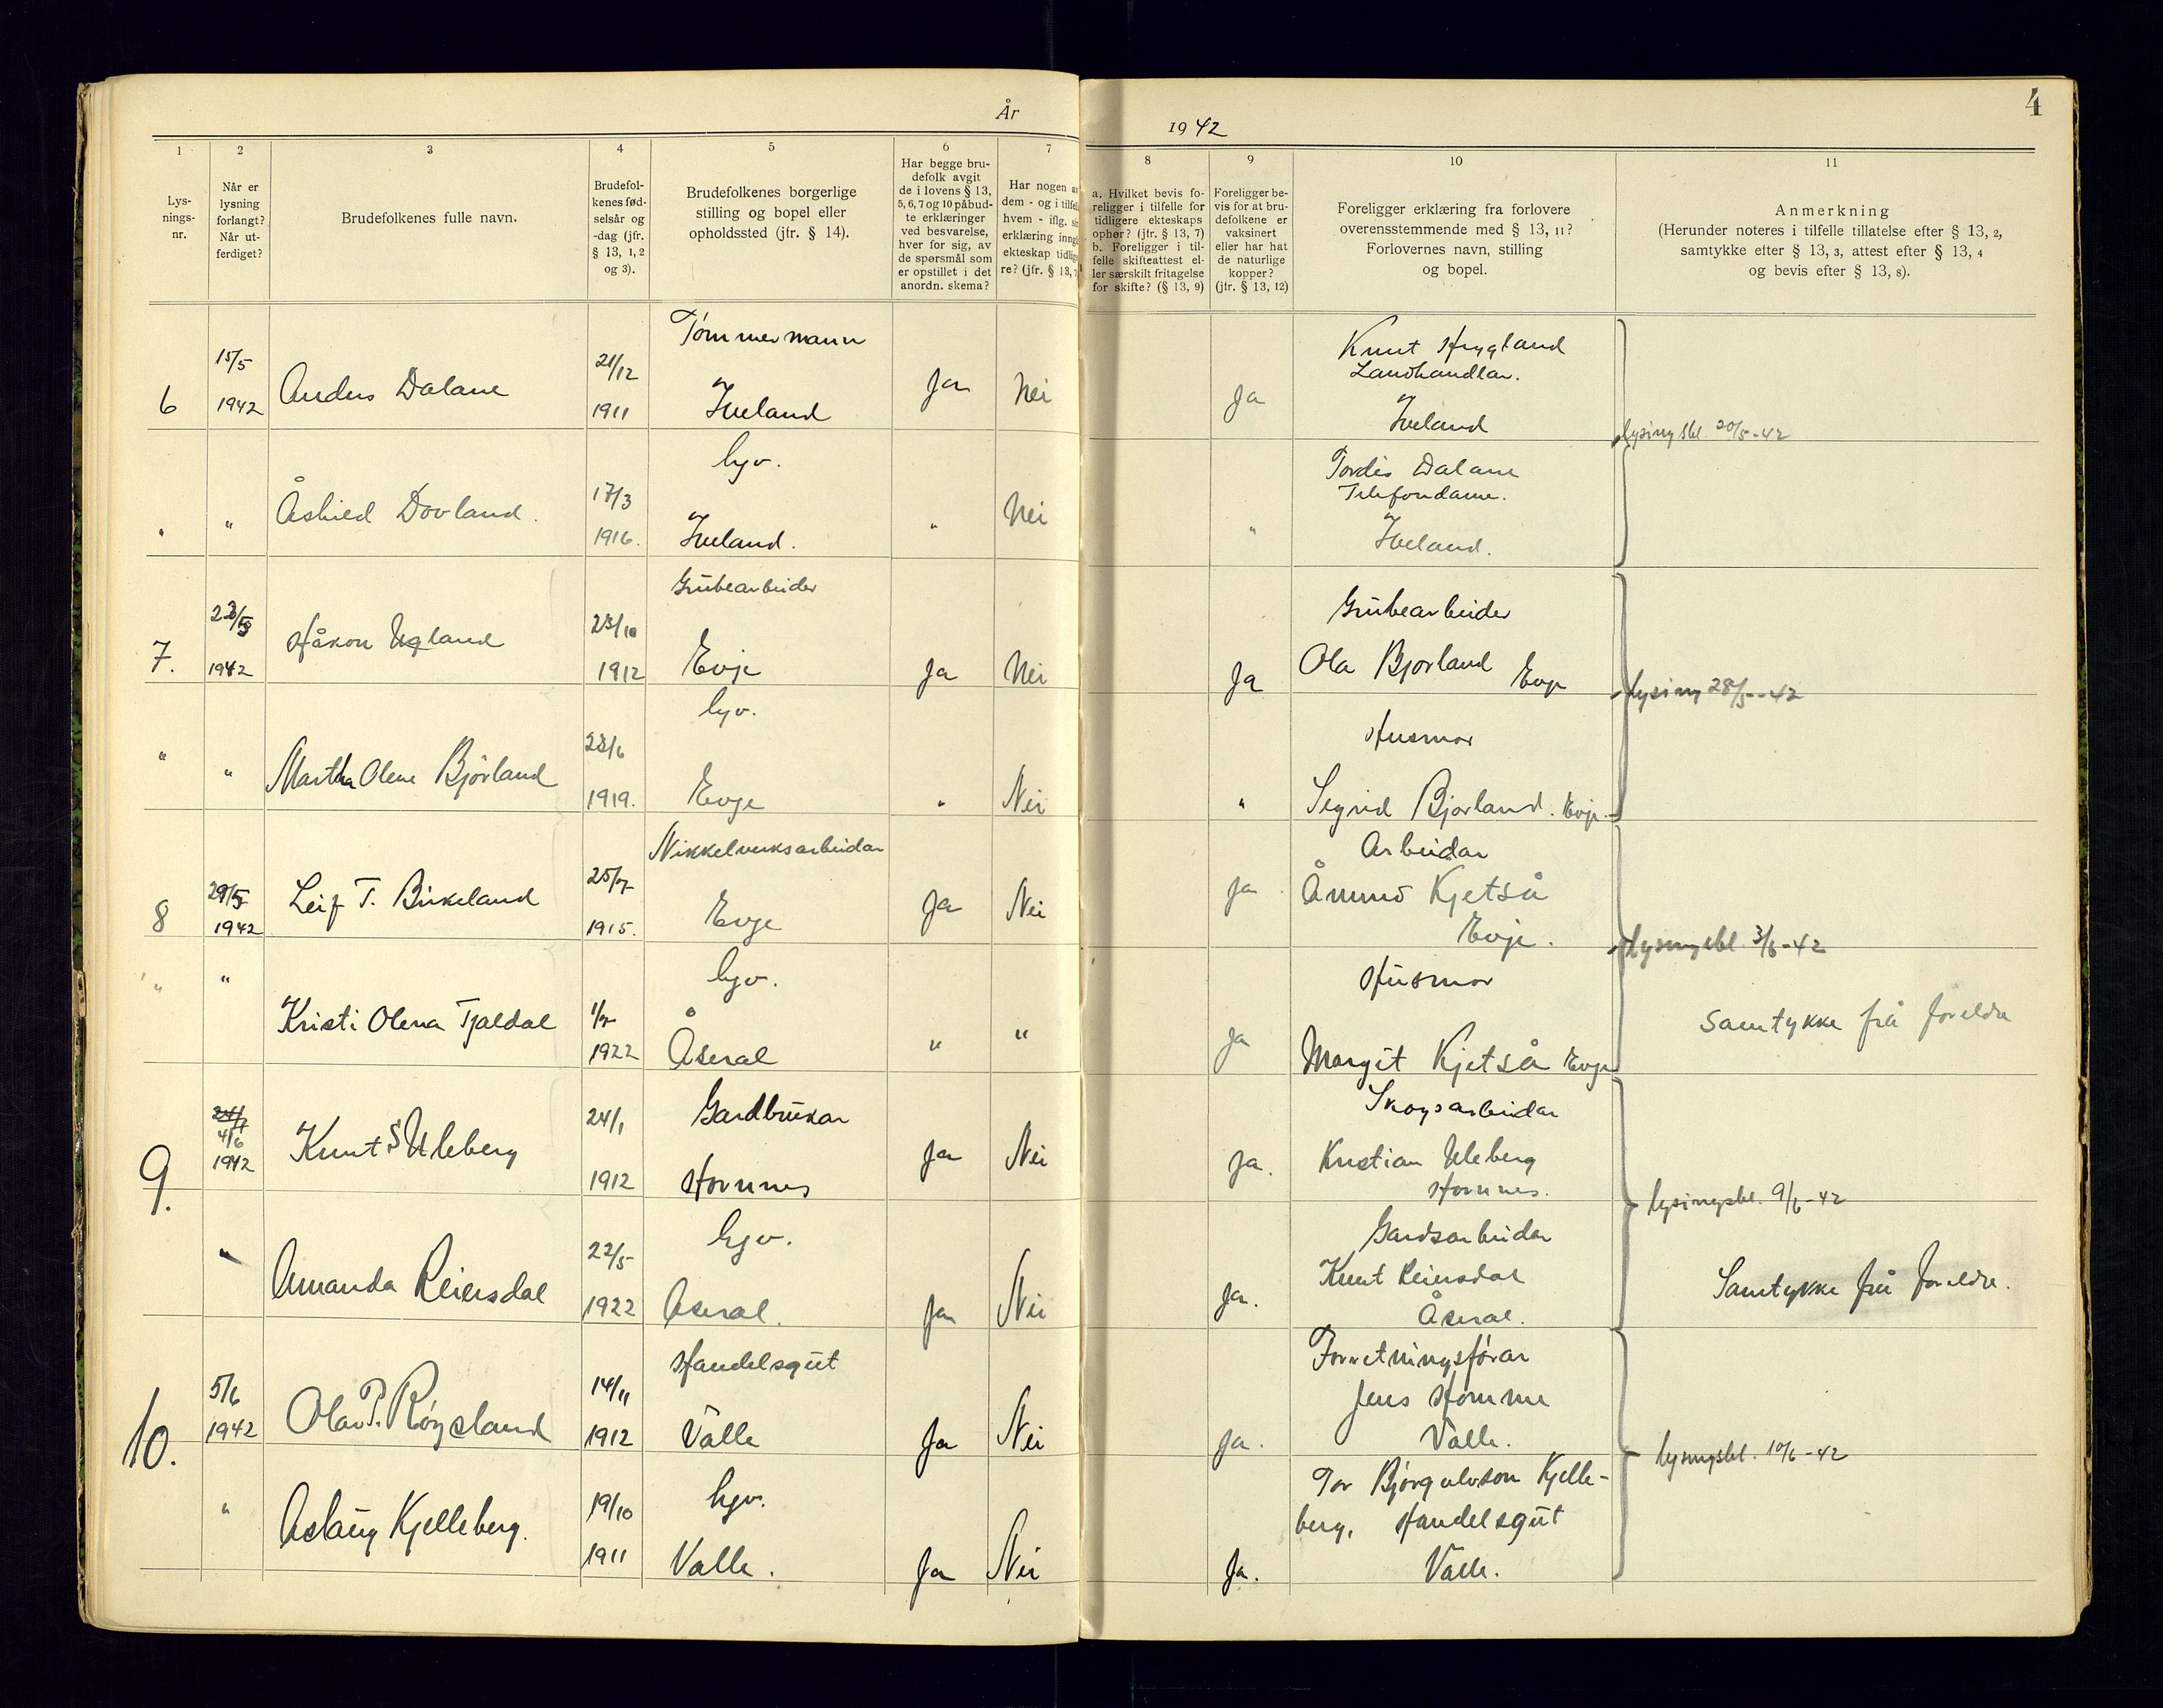 4
År 1942
1
2
3
4
5
6
7
8
9
10
11
Lys-
nings-
nr.
Når er
lysning
forlangt?
Når ut-
ferdiget?
Brudefolkenes fulle navn.
Brudefol-
kenes fød-
selsår og
-dag (jfr.
§ 13, 1, 2
og 3).
Brudefolkenes borgerlige
stilling og bopel eller
opholdssted (jfr. § 14).
Har begge bru-
defolk avgit
de i lovens § 13,
5, 6, 7 og 10 påbud-
te erklæringer
ved besvarelse,
hver for sig, av
de spørsmål som
er opstillet i det
anordn. skema?
Har nogen av
dem - og i tilfelle
hvem - iflg.
erklæring inng
ekteskap tidlig
re? (jfr. § 13,
a. Hvilket bevis fo-
religger i tilfelle for
tidligere ekteskaps
ophør? (jfr. § 13, 7)
b. Foreligger i til-
felle skifteattest el-
ler særskilt fritagelse
for skifte? (§ 13, 9)
Foreligger be-
vis for at bru-
defolkene er
vaksinert
eller har hat
de naturlige
kopper?
(jfr. § 13, 12)
Foreligger erklæring fra forlovere
overensstemmende med § 13, 11?
Forlovernes navn, stilling
og bopel.
Anmerkning
(Herunder noteres i tilfelle tillatelse efter § 13, 2,
samtykke efter § 13, 3, attest efter § 13, 4
og bevis efter § 13, 8).
6
15/5
1942
Anders Dalane
21/12
1911
Tømmermann
Iveland
Ja
Nei
Ja
Knut Hugland
Landhandlar.
Iveland
lysingsbl. 20/5-42
"
"
Åshild Dovland.
17/3
1916.
hgv.
Iveland.
"
Nei
"
Tordis Dalane
Telefondame.
Iveland.
7.
1942
Håkon Ugland
23/10
1912
Grubearbeider
Evje
Ja
Nei
Ja
Grubearbeider
Ola Bjørland Evje
lysing 28/5-42
"
"
Martha Olene Bjørland
23/6
1919.
hgv.
Evje
"
Nei
"
Husmor
Sigrid Bjørland. Evje.
8
29/5
1942
Leif T. Birkeland
25/7
1915.
Nikkelverksarbeidar
Evje
Ja
Nei
Ja
Arbeidar
Åmund Kjetså
Evje.
lysingsbl. 3/6-42
"
"
Kristi Olena Tjaldal
1/7
1922
hgv.
Åseral
"
"
Ja
Husmor
Margit Kjetså Evje
Samtykke frå foreldre
9.
4/6
1942
Knut S Uleberg
24/1
1912
Gardbrukar
Hornnes
Ja
Nei
Ja.
Skogsarbeidar
Kristian Uleberg
Hornnes.
lysingsbl. 9/6-42
"
Amanda Reiersdal
22/5
1922
hgv.
Åseral.
Ja
Nei
Ja.
Gardsarbeidar
Knut Reiersdal
Åseral.
Samtykke frå foreldre.
10.
5/6
1942
Olav P. Røysland
14/11
1912
Handelsgut
Valle
Ja
Nei
Ja.
Forretningsførar
Jens Homme
Valle.
lysingsbl. 10/6-42
"
Aslaug Kjelleberg.
19/10
1911
hgv.
Valle.
Ja
Nei
Ja.
Tor Bjørgulvson Kjelle-
berg, Handelsgut
Valle.